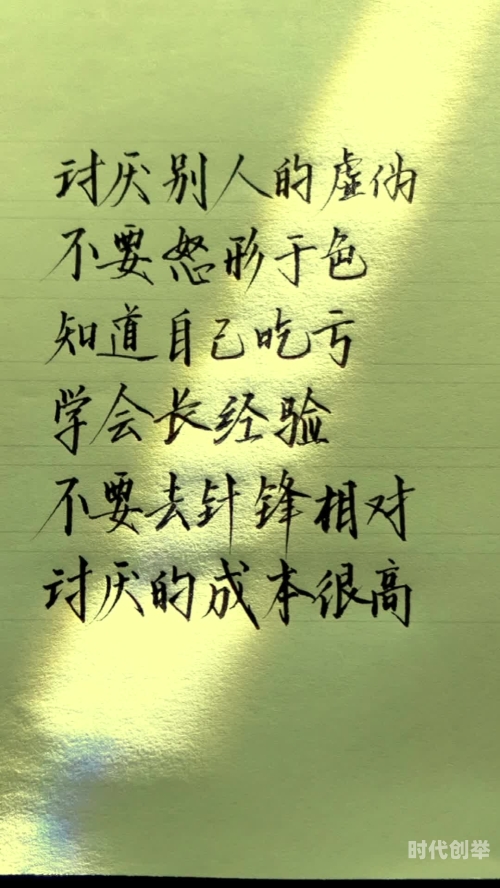 讨厌别人的虚伪
不要怒形于色
知道自己吃亏
学会长经验
不要去针锋相对
讨厌的成本很高
时代创举